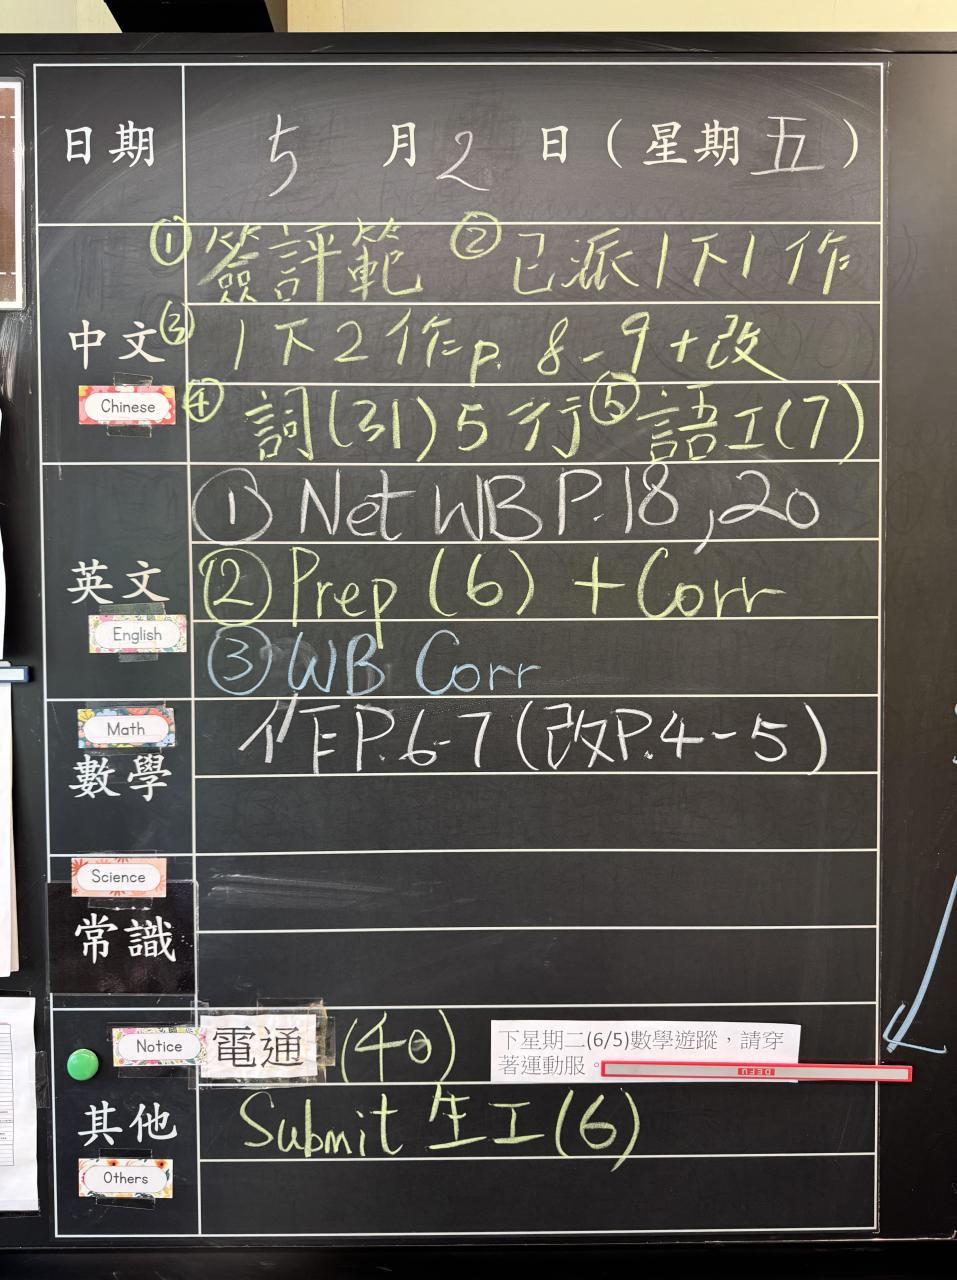 日期 5 月 2 日(星期五)
① 簽評範 ② 已派1下1作
中文 ③ 1下2作p. 8-9+改
Chinese ④ 詞(31)5行 ⑤ 語工(7)
① Net WB P.18,20
英文 ② Prep (6) + Corr
English ③ WB Corr
Math 作P.6-7(改P.4-5)
數學
Science
常識
Notice 電通 (40) 下星期二(6/5)數學遊蹤,請穿
著運動服。
DEFU
其他 Submit 生工(6)
Others